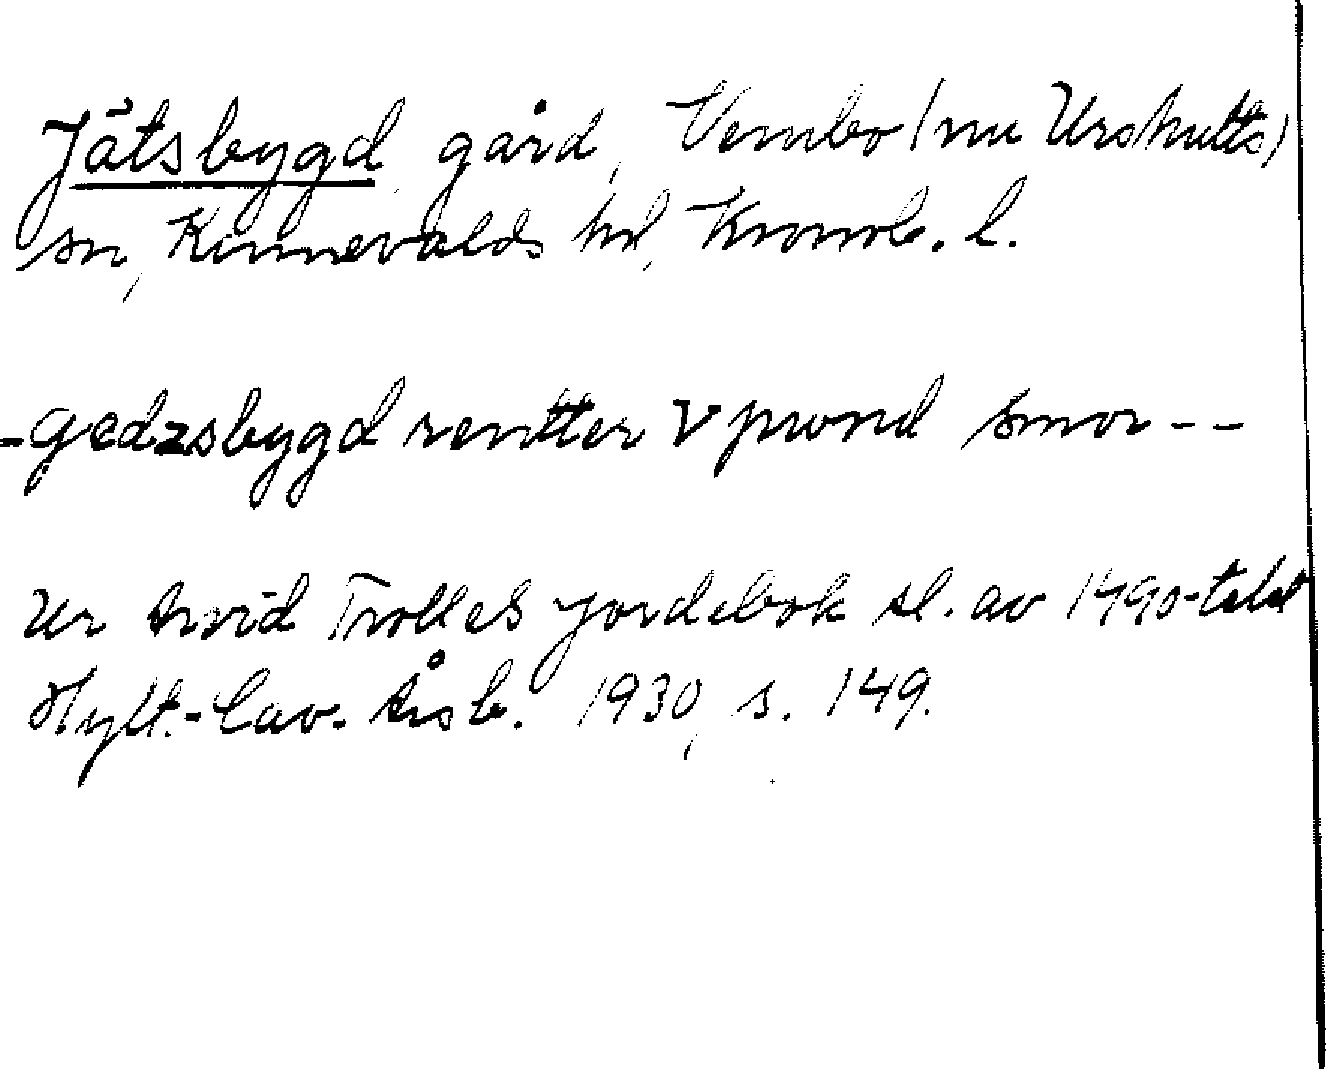 Jätsbygd gård, Vembo (nu Urshults)
sn, Kinnevalds hd, Kronob. l.
-gedzsbygd rentter V pwnd smor--
Ur Arvid Trolles jordebok sl. av 1490-talet
Hylt.-Cav. Årsb. 1930, s. 149.